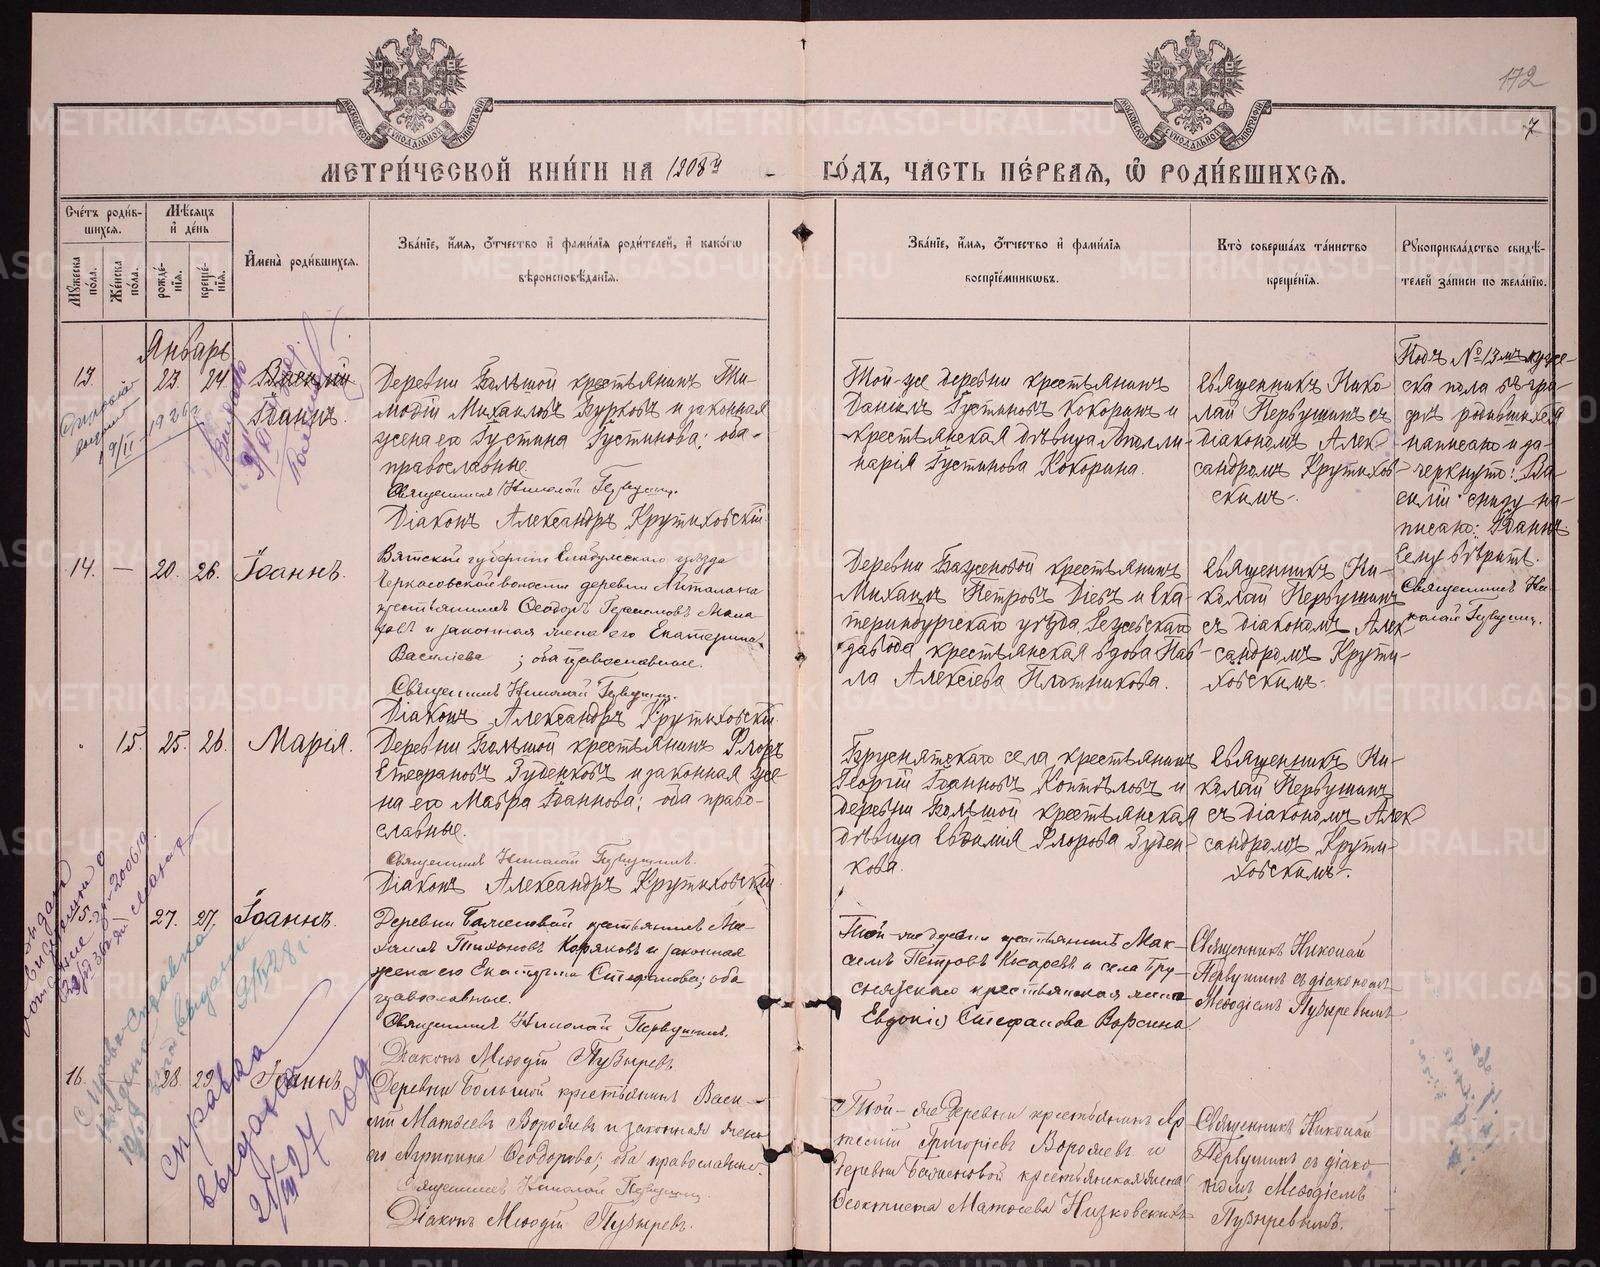 172
7
МЕТРИ́ЧЕСКОЙ КНИ́ГИ НА 1908й ГО́ДЪ, ЧА́СТЬ ПЕ́РВАѦ, Ѡ҆ РОДИ́ВШИХСѦ.
Сче́тъ роди́в-
шихся.
Мѣ́сяцъ
и҆ де́нь
Мꙋ́жеска по́ла.
Же́нска по́ла.
рожде́-
нїя.
креще́-
нїя.
И҆мена̀ роди́вшихся.
Зва́нїе, и҆́мя, ѻ҆́тчество и҆ фами́лїя роди́телей, и҆ како́гѡ
вѣроисповѣ́данїя.
Зва́нїе, и҆́мя, ѻ҆́тчество и҆ фами́лїя
воспрїе́мникѡвъ.
Кто̀ соверша́лъ та́инство
креще́нїя.
Рꙋкоприкла́дство свидѣ́-
телей за́писи по жела́нїю.
Январь
13. 23. 24. Василій
Іоаннъ.
Деревни Большой крестьянинъ Ти-
мофій Михаиловъ Бурковъ и законная
жена его Іустина Іустинова; оба
православные.
Священникъ Николай Первушинъ.
Діаконъ Александръ Крутиховскій
Той-же деревни крестьянинъ
Даніилъ Іустиновъ Кокоринъ и
крестьянская дѣвица Аполли-
нарія Іустинова Кокорина.
Священникъ Нико-
лай Первушинъ съ
діакономъ Алек-
сандромъ Крутихов-
скимъ.
Подъ № 13мъ муже-
ска пола въ гра-
фѣ родившихся
написано и за-
черкнуто: Ва-
силій снизу на-
писано: Іоаннъ
Сему вѣрить.
Священникъ Ни-
колай Первушинъ.
14. — 20. 26. Іоаннъ.
Вятской губерніи Елабужскаго уѣзда
Черкасовской волости деревни
крестьянинъ Ѳеодоръ Герасимовъ
и законная жена его Екатерина
Васильева; оба православные.
Священникъ Николай Первушинъ.
Діаконъ Александръ Крутиховскій
Деревни Баженовой крестьянинъ
Михаилъ Петровъ и Ека-
теринбургскаго уѣзда, Режевскаго
завода крестьянская вдова Пав-
ла Алексіева Плотникова.
Священникъ Ни-
колай Первушинъ
съ діакономъ Алек-
сандромъ Крути-
ховскимъ.
15. 25. 26. Марія.
Деревни Большой крестьянинъ Флоръ
Стефановъ Зуденковъ и законная же-
на его Мавра Іоаннова; оба право-
славные.
Священникъ Николай Первушинъ.
Діаконъ Александръ Крутиховскій
Бруснятскаго села крестьянинъ
Георгій Іоанновъ Коптѣловъ и
деревни Большой крестьянская
дѣвица Евѳимія Флорова Зуден-
кова.
Священникъ Ни-
колай Первушинъ
съ діакономъ Алек-
сандромъ Крути-
ховскимъ.
27. 27. Іоаннъ.
Деревни Баженовой крестьянинъ Ми-
хаилъ Тихоновъ Коряковъ и законная
жена его Екатерина Стефанова; оба
православные.
Священникъ Николай Первушинъ.
Діаконъ Меѳодій Пузыревъ.
Той-же деревни крестьянинъ Мак-
симъ Петровъ Писаревъ и села Бру-
снятскаго крестьянская жена
Евдокія Стефанова Ворсина
Священникъ Николай
Первушинъ съ діакономъ
Меѳодіемъ Пузыревымъ
16. 28. 29. Іоаннъ.
Деревни Большой крестьянинъ Васи-
лій Матѳіевъ Воробьевъ и законная жена
его Агрипина Ѳеодорова; оба православные.
Священникъ Николай Первушинъ.
Діаконъ Меѳодій Пузыревъ.
Той-же деревни крестьянинъ Ар-
темій Григоріевъ Воробьевъ и
деревни Баженовой крестьянская жена
Ѳеоктиста Матѳіева Низковскихъ
Священникъ Николай
Первушинъ съ діако-
номъ Меѳодіемъ
Пузыревымъ.
справка
выдана
21/III 27 год
METRIKI.GASO-URAL.RU